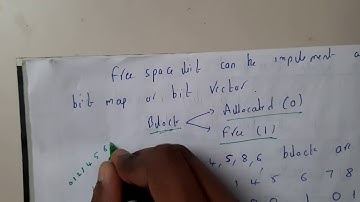 free space list can be implement a
bit map or bit vector.
Block Allocated (0)
Free (1)
4, 5, 8, 6, block are
0, 1, 2, 4, 5, 6
1 4 5 6 7 8
1 0 1 0 1